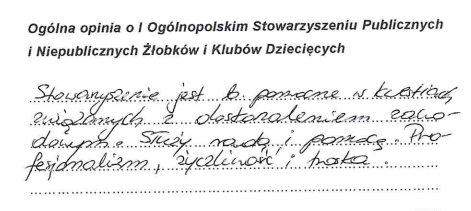 Ogólna opinia o I Ogólnopolskim Stowarzyszeniu Publicznych
i Niepublicznych Żłobków i Klubów Dziecięcych
Stowarzyszenie jest b. pomocne w kwestiach
związanych z doskonaleniem zawo-
dowym. Służy radą i pomocą. Pro-
fesjonalizm, życzliwość i troska.